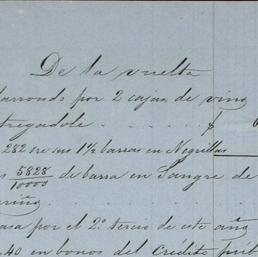 De la vuelta
por 2 cajas de vino
tregadole . . . . . $
282 1½ barras en Negrillas
s 5828/10000 de barra en Sangre de
asa por el 2º tercio de este año
.40 en bonos del Crédito púb